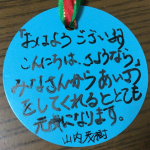 「おはようございます
こんにちは、さようなら」
みなさんからあいさつ
をしてくれるととても
元気になります。
山内